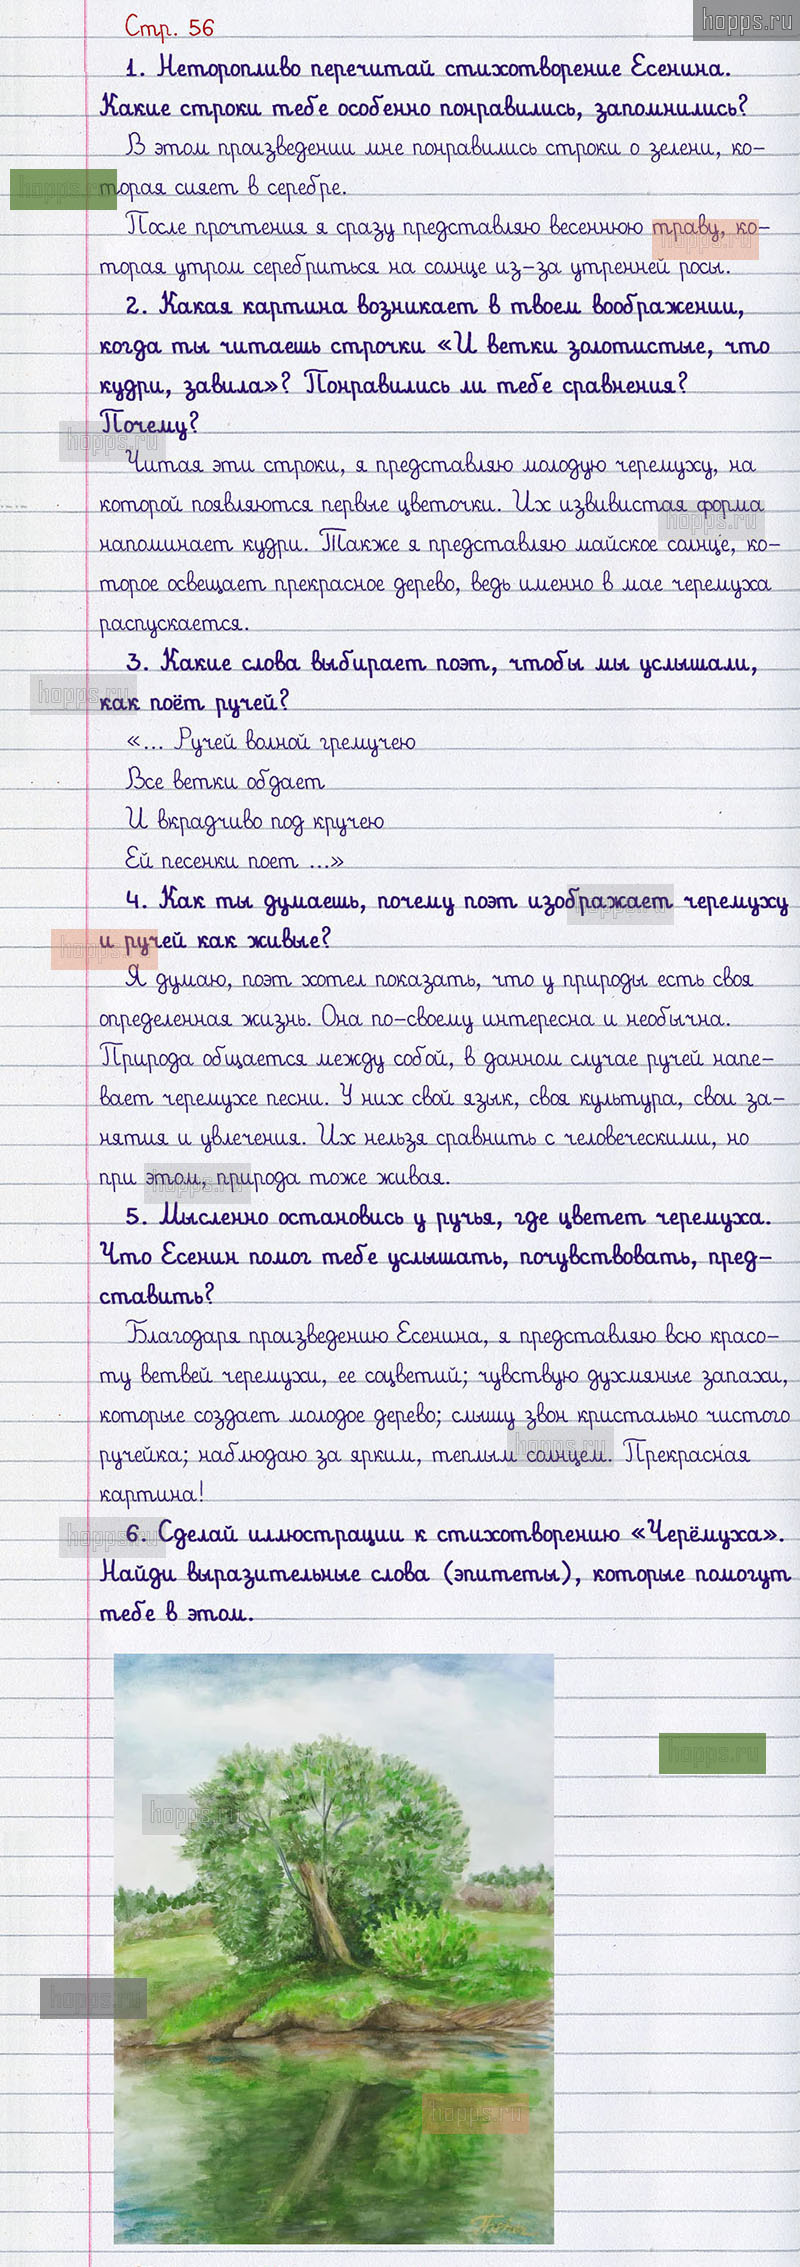 hopps.ru
Стр. 56
1. Неторопливо перечитай стихотворение Есенина.
Какие строки тебе особенно понравились, запомнились?
В этом произведении мне понравились строки о зелени, ко-
hopps.ru
торая сияет в серебре.
После прочтения я сразу представляю весеннюю траву, ко-
hopps.ru
торая утром серебриться на солнце из-за утренней росы.
2. Какая картина возникает в твоем воображении,
когда ты читаешь строчки «И ветки золотистые, что
кудри, завила»? Понравились ли тебе сравнения?
Почему?
hopps.ru
Читая эти строки, я представляю молодую черемуху, на
которой появляются первые цветочки. Их извивистая форма
hopps.ru
напоминает кудри. Также я представляю майское солнце, ко-
торое освещает прекрасное дерево, ведь именно в мае черемуха
распускается.
3. Какие слова выбирает поэт, чтобы мы услышали,
hopps.ru
как поёт ручей?
«... Ручей волной гремучею
Все ветки обдает
И вкрадчиво под кручею
Ей песенки поет ...»
4. Как ты думаешь, почему поэт изображает черемуху
hopps.ru
и ручей как живые?
hopps.ru
Я думаю, поэт хотел показать, что у природы есть своя
определенная жизнь. Она по-своему интересна и необычна.
Природа общается между собой, в данном случае ручей напе-
вает черемухе песни. У них свой язык, своя культура, свои за-
нятия и увлечения. Их нельзя сравнить с человеческими, но
при этом, природа тоже живая.
hopps.ru
5. Мысленно остановись у ручья, где цветет черемуха.
Что Есенин помог тебе услышать, почувствовать, пред-
ставить?
Благодаря произведению Есенина, я представляю всю красо-
ту ветвей черемухи, ее соцветий; чувствую духмяные запахи,
которые создает молодое дерево; слышу звон кристально чистого
hopps.ru
ручейка; наблюдаю за ярким, теплым солнцем. Прекрасная
картина!
hopps.ru
6. Сделай иллюстрации к стихотворению «Черёмуха».
Найди выразительные слова (эпитеты), которые помогут
тебе в этом.
hopps.ru
hopps.ru
hopps.ru
hopps.ru